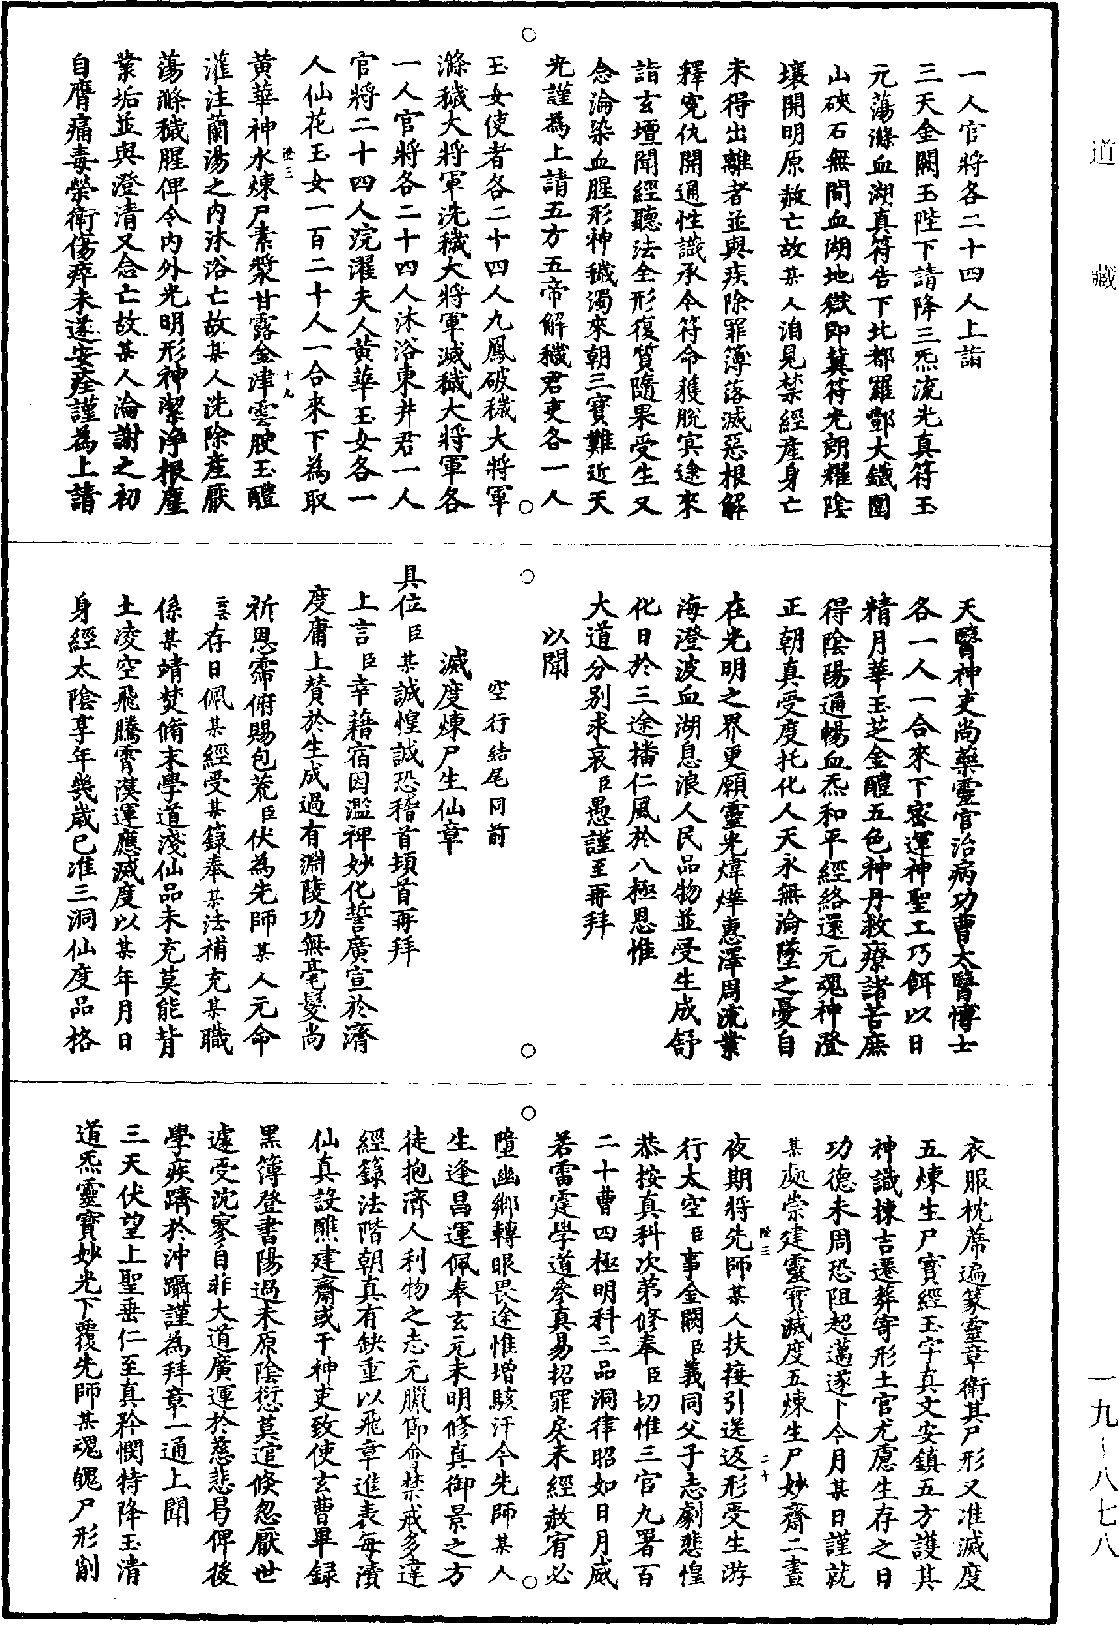 道藏
一九—八七八
一人官將各二十四人上詣
三天金闕玉陛下請降三炁流光真符玉
元蕩滌血湖真符告下北都羅酆大鐵圍
山硤石無間血湖地獄即冀符光朗耀陰
壤開明原赦亡故某人洎見禁經產身亡
未得出離者並與疾除罪簿落滅惡根解
釋冤仇開通性識承今符命獲脫冥途來
詣玄壇聞經聽法全形復質隨果受生又
念淪染血腥形神穢濁來朝三寶難近天
光謹為上請五方五帝解穢君吏各一人
玉女使者各二十四人九鳳破穢大將軍
滌穢大將軍洗穢大將軍滅穢大將軍各
一人官將各二十四人沐浴東井君一人
官將二十四人浣濯夫人黃華玉女各一
人仙花玉女一百二十人一合來下為取
黃華神水煉尸素漿甘露金津雲腴玉醴
十九
灌注蘭湯之內沐浴亡故某人洗除產厭
蕩滌穢腥俾令內外光明形神潔淨根塵
業垢並與澄清又念亡故某人淪謝之初
自膺痛毒榮衛傷瘁未遂安痊謹為上請
天醫神吏尚藥靈官治病功曹太醫博士
各一人一合來下密運神聖工巧餌以日
精月華玉芝金醴五色神丹救療諸苦庶
得陰陽通暢血炁和平經絡還元魂神澄
正朝真受度托化人天永無淪墜之憂自
在光明之界更願靈光煒燁惠澤周流業
海澄波血湖息浪人民品物並受生成舒
化日於三途播仁風於八極恩惟
大道分別求哀臣愚謹至再拜
以聞
空行結尾同前
滅度煉尸生仙章
具位臣某誠惶誠恐稽首頓首再拜
上言臣幸藉宿因濫裨妙化誓廣宣於濟
度庸上贊於生成過有淵陵功無毫髮尚
祈恩霈俯賜包荒臣伏為先師某人元命
云云存日佩某經受某籙奉某法補充某職
係某靖焚脩末學道淺仙品未充莫能背
土凌空飛騰霄漢運應滅度以某年月日
身經太陰享年幾歲已准三洞仙度品格
衣服枕蓆遍篆靈章衛其尸形又准滅度
五煉生尸寶經玉字真文安鎮五方護其
神識揀吉還葬寄形土官尤慮生存之日
功德未周恐阻超邁遂卜今月某日謹就
某處崇建靈寶滅度五煉生尸妙齋二晝
夜期將先師某人扶接引送返形受生游
二十
行太空臣事金闕臣義同父子志劇悲惶
恭按真科次第修奉臣切惟三官九署百
二十曹四極明科三品洞律昭如日月威
若雷霆學道參真易招罪戾未經赦宥必
墮幽鄉轉眼畏途惟增駭汗今先師某人
生逢昌運佩奉玄元未明修真御景之方
徒抱濟人利物之志元臘節俞禁戒多違
經籙法階朝真有缺重以飛章進表每瀆
仙真設醮建齋或干神吏致使玄曹畢錄
黑簿登書陽過未原陰愆莫逭倏忽厭世
遽受沈寥自非大道廣運於慈悲曷俾後
學疾躋於沖躡謹為拜章一通上聞
三天伏望上聖垂仁至真矜憫特降玉清
道炁靈寶妙光下覆先師某魂魄尸形削